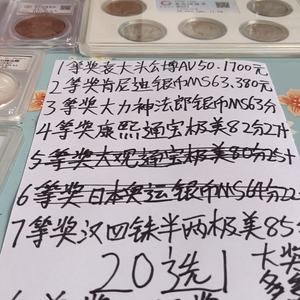 1等奖袁大头公博AV50.1700元
2等奖肯尼迪银币MS63.380元
3等奖大力神法郎银币MS63分
4等奖康熙通宝极美82分2计
5等奖大观通宝极美80分25计
6等奖日本奥运银币MS64分22
7等奖汉四铢半两极美85分
20选1
大奖
多多